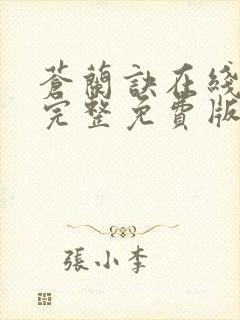 蒼蘭訣在綫
完整免費版
張小李